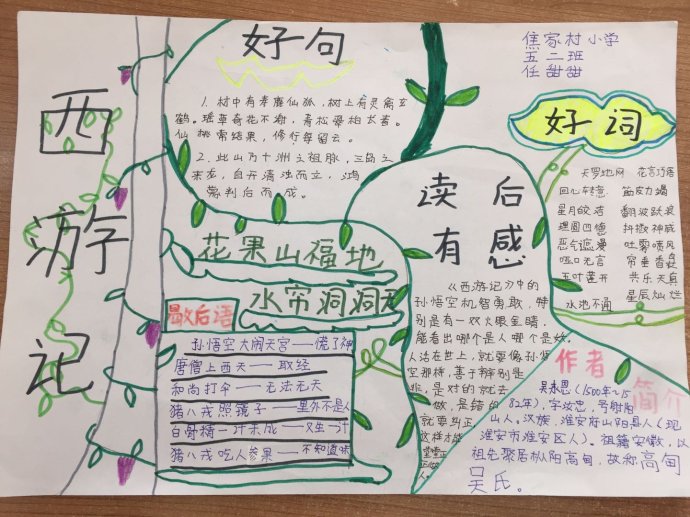 西游记
好句
1. 村中有寿鹿仙狐，树上有灵禽玄
鹤。瑶草奇花不谢，青松翠柏长春。
仙桃常结果，修竹每留云。
2. 此山乃十洲之祖脉，三岛之
来龙，自开清浊而立，鸿
蒙判后而成。
焦家村小学
五二班
任甜甜
好词
天罗地网 花言巧语
回心转意 筋皮力竭
星月皎洁 翻波跃浪
理圆四德 抖擞神威
恶气遮漫 吐雾喷风
哑口无言 帘垂香袅
玉叶莲开 共乐天真
水池不涸 星辰灿烂
花果山福地
水帘洞洞天
歇后语
孙悟空大闹天宫——慌了神
唐僧上西天——取经
和尚打伞——无法无天
猪八戒照镜子——里外不是人
白骨精一计未成——又生一计
猪八戒吃人参果——不知道味
读后
有感
《西游记》中的
孙悟空机智勇敢，特
别是有一双火眼金睛，
能看出哪个是人哪个是妖。
人活在世上，就要像孙悟
空那样，善于辩别是
非，是对的就去
做，是错的
就要纠正，
这样才能
堂堂正
正做
人。
作者
简介
吴承恩（1500年~15
82年），字汝忠，号射阳
山人。汉族，淮安府山阳县人（现
淮安市淮安区人）。祖籍安徽，以
祖先聚居枞阳高甸，故称高甸
吴氏。